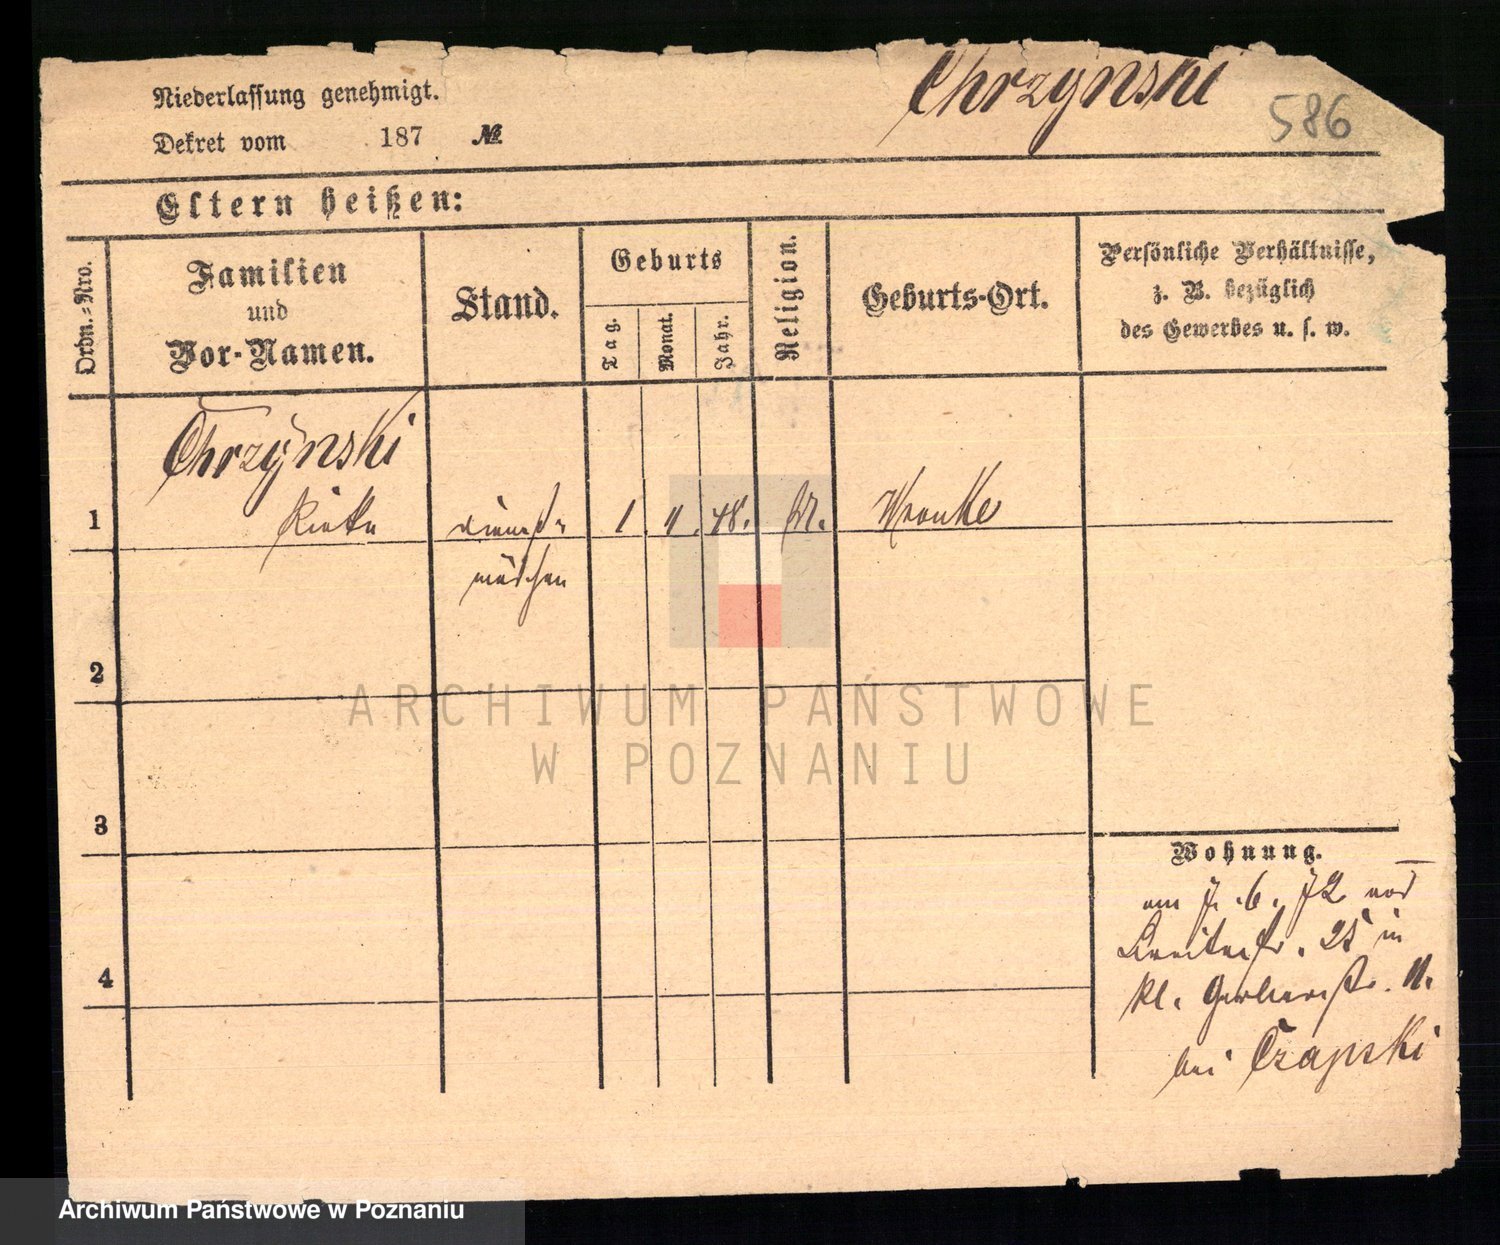 Chrzynski
586
Niederlassung genehmigt.
Dekret vom 187 №
Eltern heißen:
Ordn.-Nro.
Familien
und
Vor-Namen.
Stand.
Geburts
Tag.
Monat.
Jahr.
Religion.
Geburts-Ort.
Persönliche Verhältnisse,
z. B. bezüglich
des Gewerbes u. s. w.
Chrzynski
1 Rieke dienst= 1 11. 48. Wronke
mädchen
2
3
4
Wohnung.
am 7. 6. 72 von
Breitestr. 25 in
kl. Gerberstr. 11.
bei Czapski
ARCHIWUM PAŃSTWOWE
W POZNANIU
Archiwum Państwowe w Poznaniu